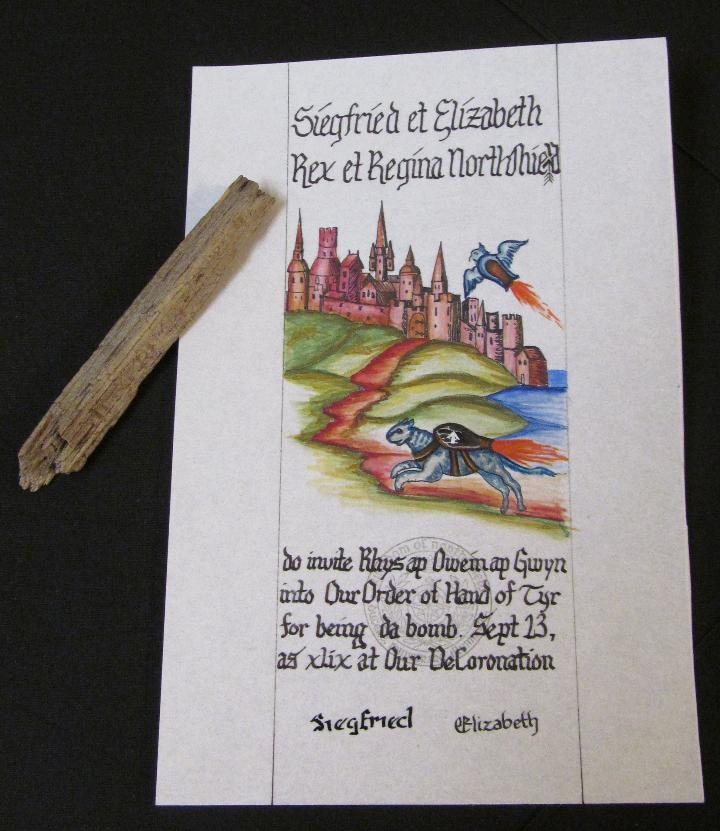 Siegfried et Elizabeth
Rex et Regina Northshield
do invite Rhys ap Owein ap Gwyn
into Our Order of Hand of Tyr
for being da bomb. Sept 13,
as xlix at Our DeCoronation
Siegfried Elizabeth